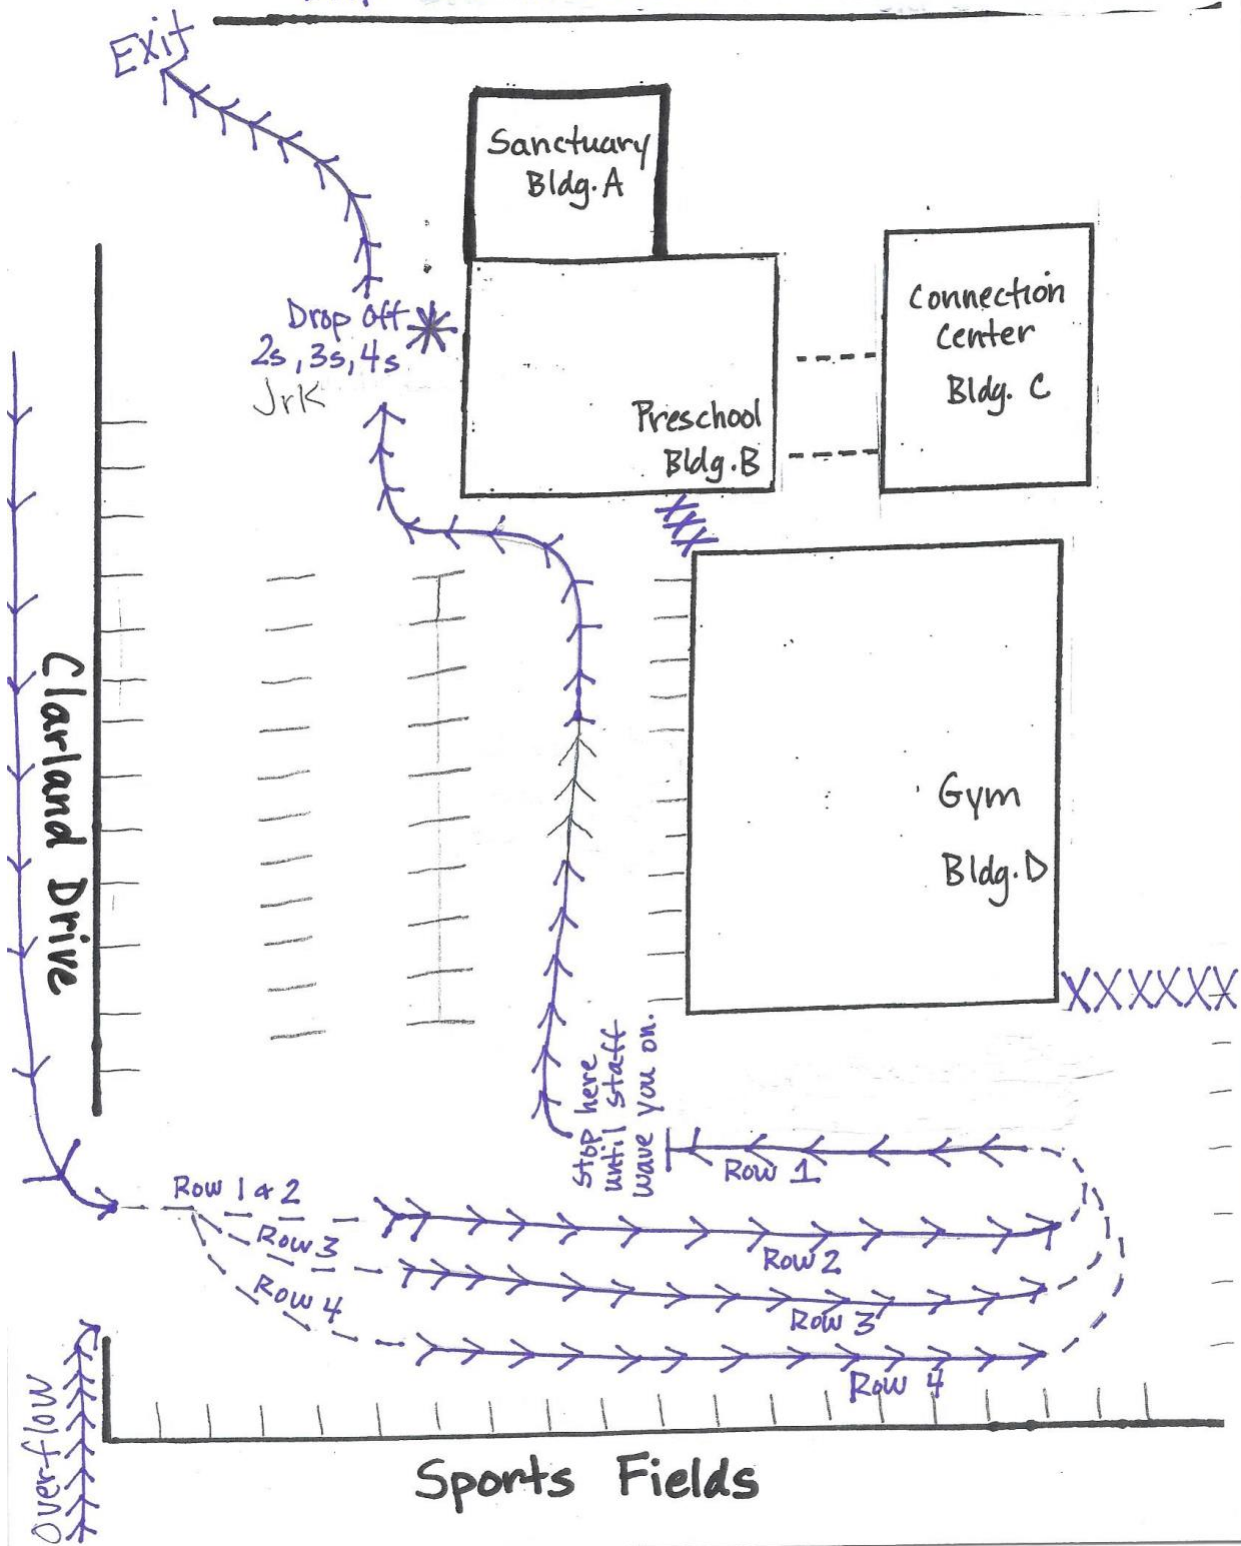 Exit
Sanctuary
Bldg. A
Connection
Center
Bldg. C
Drop Off
2s, 3s, 4s
JrK
Preschool
Bldg. B
Clarland Drive
Gym
Bldg. D
XXXXXX
Stop here
until staff
wave you on.
Row 1
Row 1 & 2
Row 3
Row 4
Row 2
Row 3
Row 4
Overflow
Sports Fields